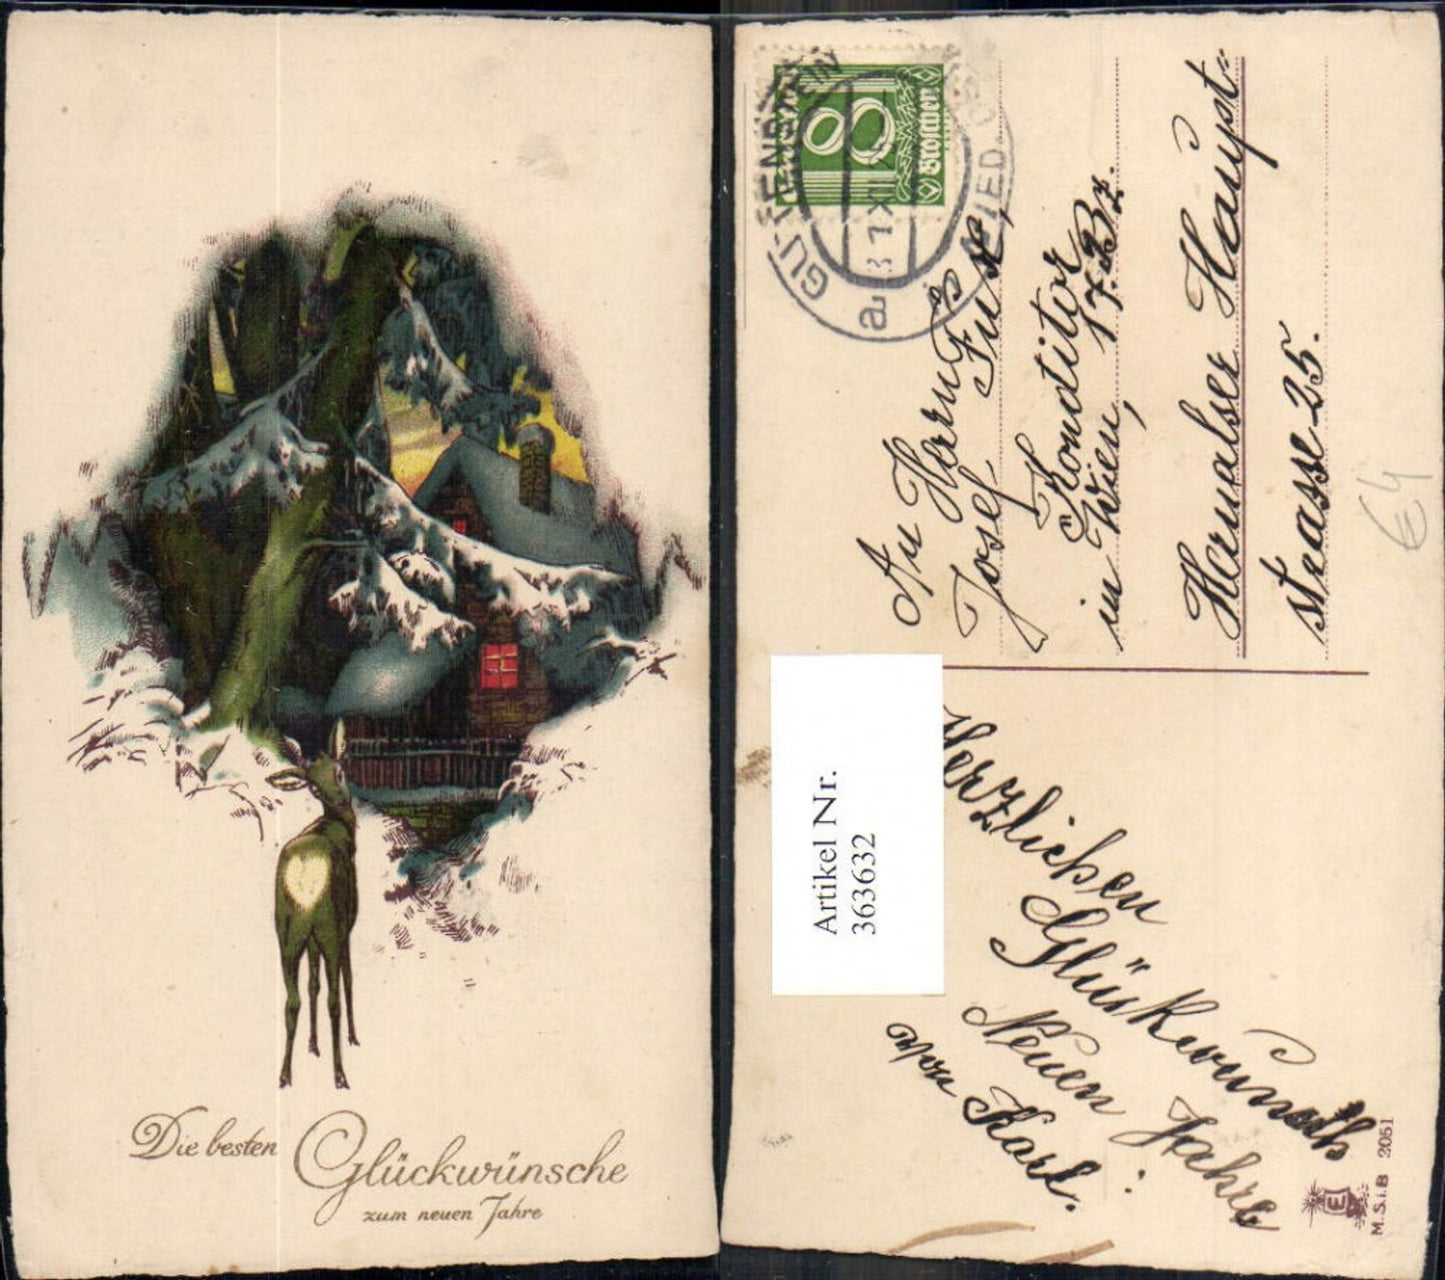 Die besten Glückwünsche
zum neuen Jahre
GUTENSTEIN
a
8
Groschen
An Herrn
Josef Fust,
Konditor
in Wien, 17. Bz.
Hernalser Haupt-
strasse 25.
E4
Artikel Nr.
363632
Herzlichen
Glückwunsch
Neuen Jahre
von Karl.
E
M.S.i.B 2051